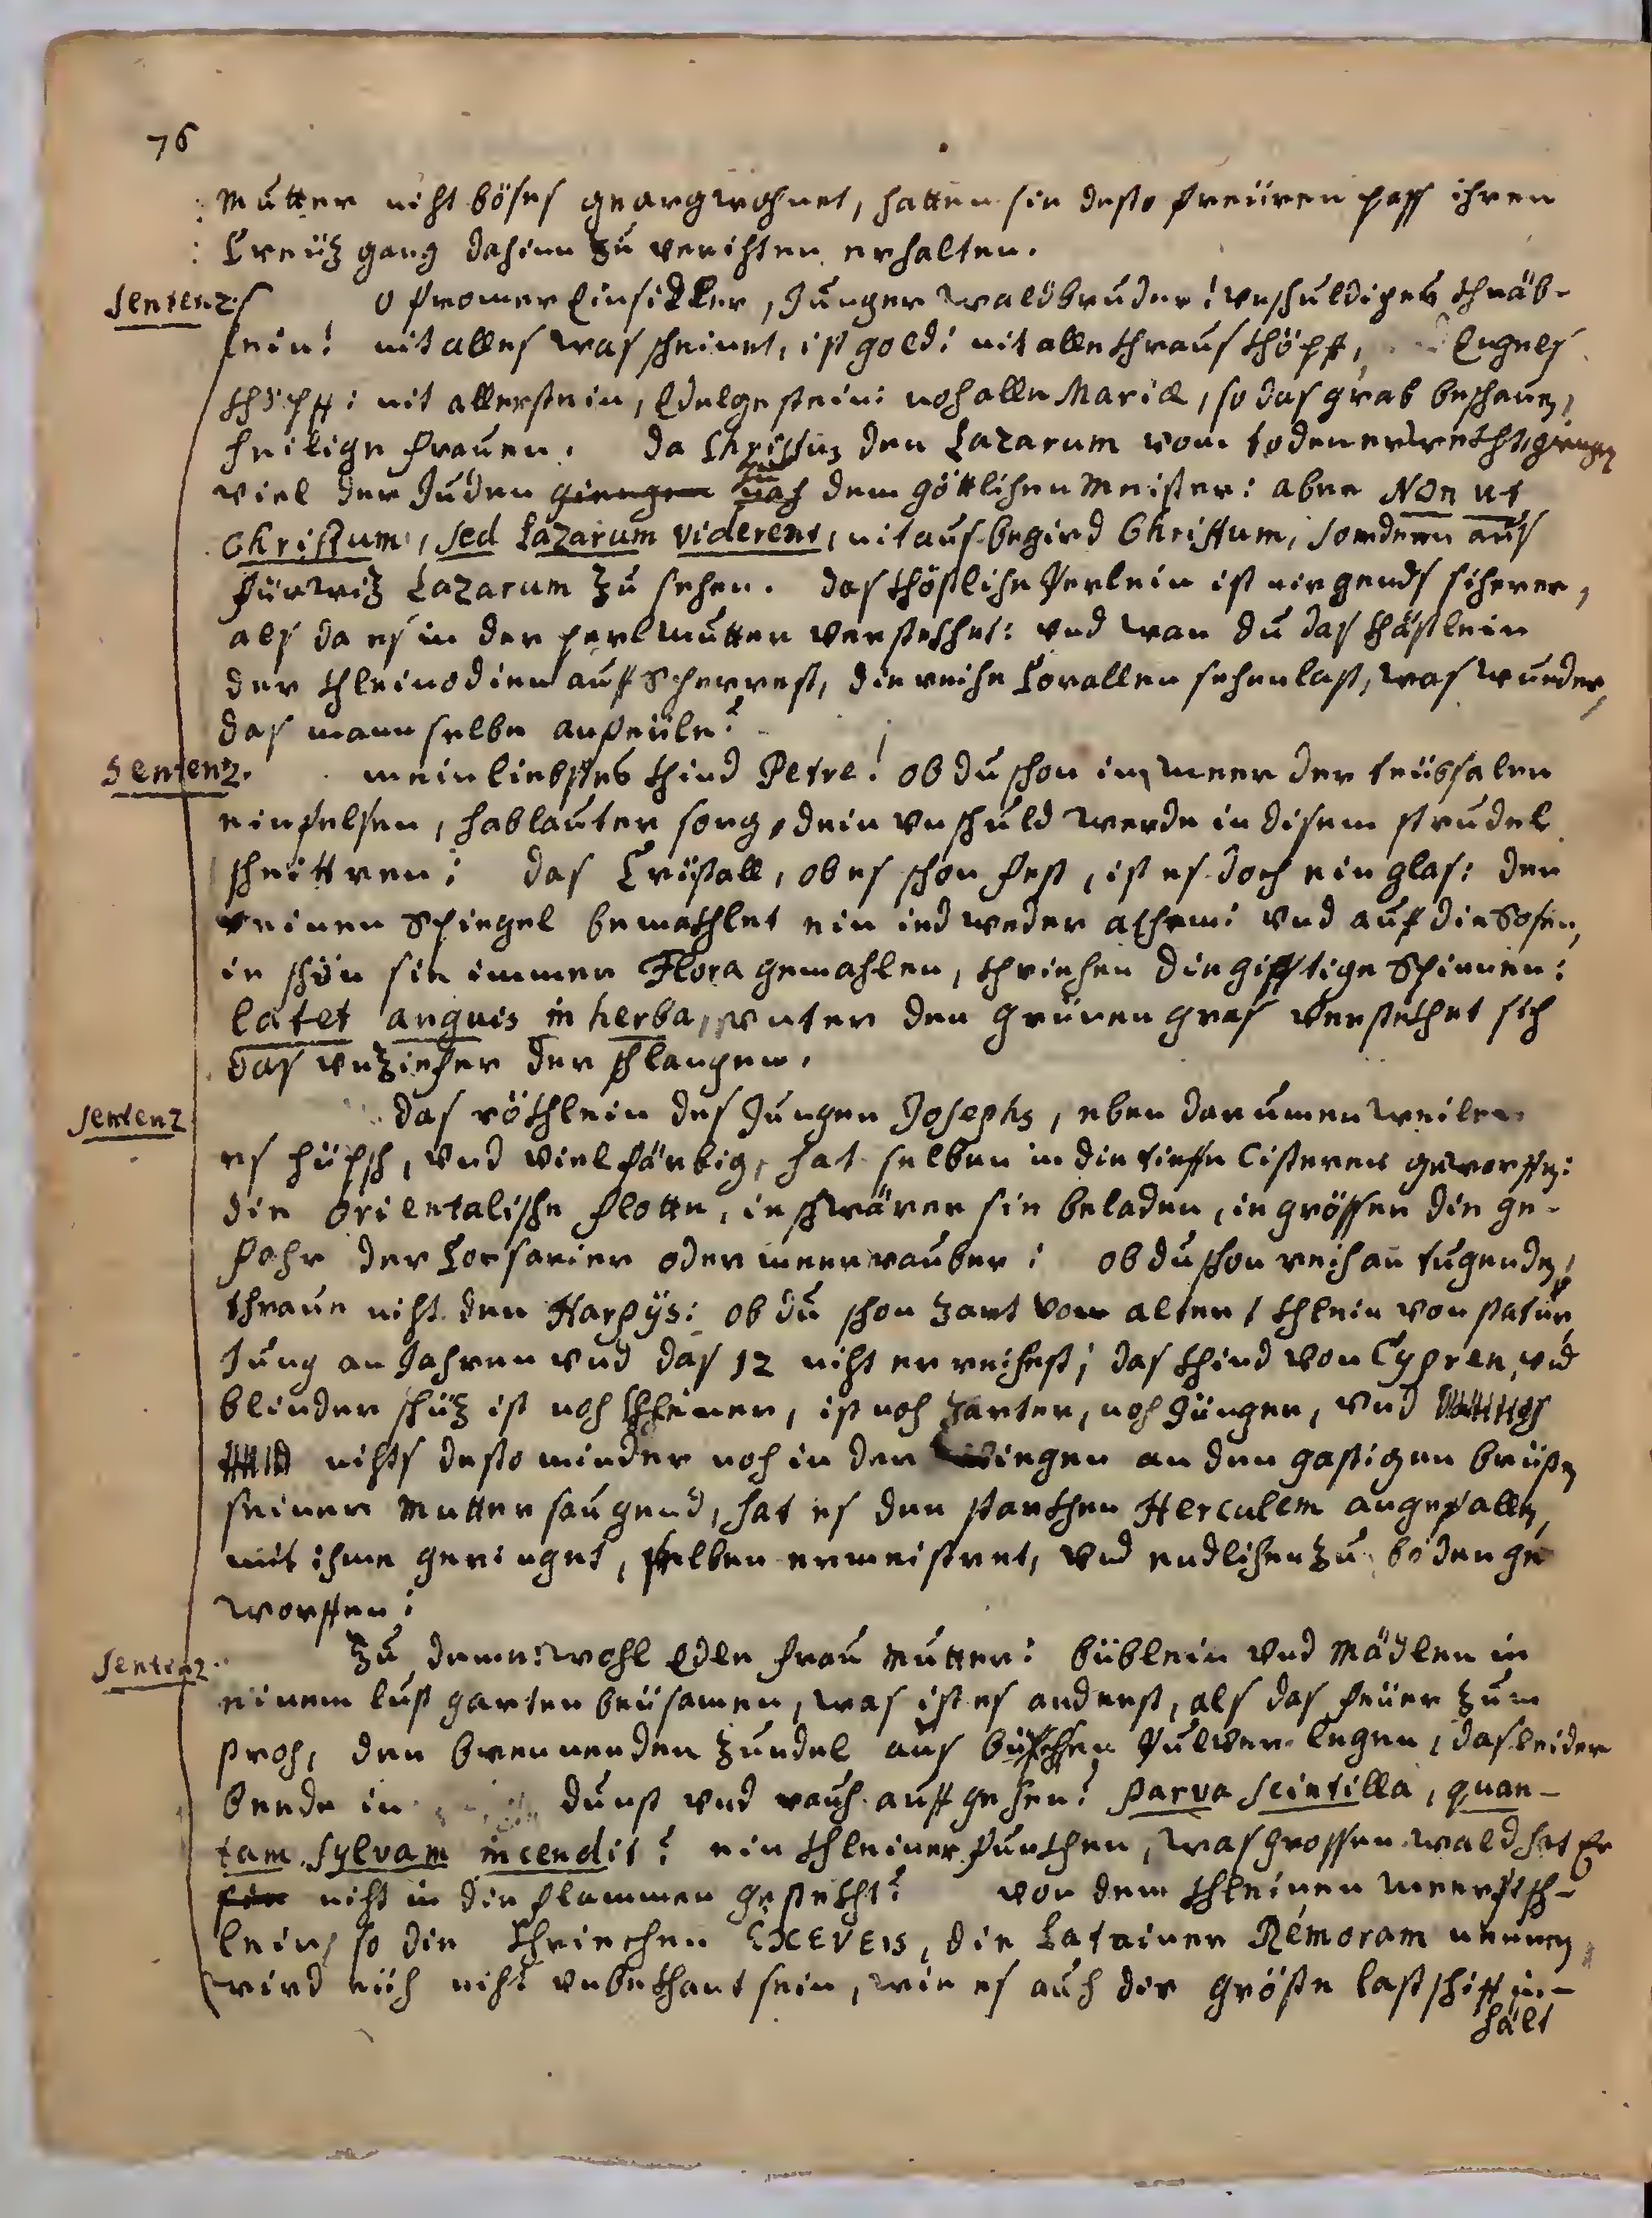 76
Mutter nicht böses geargwohnet, hatten sie desto freüren pass ihren
Creütz gang dahinn zu verichten erhalten.
Sentenz
O fromer Einsidler, Junger waldbruder! unschuldiges thnäb-
lein! nit alles was scheinet, ist gold: nit alle thrausthöpff, Engels
thöpff: nit allerstein, Edelgestein: noch alle Mariæ, so das grab beschauen,
heilige frauen. Da Christus den Lazarum vom toden erweckht, gingen
viel der Juden giengen nach dem göttlichen Meister: aber Non ut
Christum, sed Lazarum viderent, nit aus begird Christum, sondern aus
fürwiz Lazarum zu sehen. das thöstliche Perlein ist nirgends sicherer,
als da es in der perlmutter verstekhet: und wan du das thästlein
der thleinodien auffscherrest, die reiche Corallen sehen last, was wunder,
das mann selbe anfeüle?
Sentenz.
mein liebstes thind Petre! ob du schon im meer der trübsalen
ein felsen, hab lauter sorg, dein unschuld werde in disem strudel
scheittren: das Cristall, ob es schon fest, ist es doch ein glas: den
reinen Spiegel bemakhlet ein iedweder athem: und auf die Rosen,
ie schön sie immer Flora gemahlen, thriechen die gifftige Spinnen:
latet anguis in herba, unter den grünen gras verstekhet sich
das unziefer der schlangen.
Sentenz
das röthlein des Jungen Josephs, eben darumen weilen
es hüpsch, und vielfärbig, hat selben in die tieffe Cisteren geworffen:
die Orientalische flotte, ie schwärer sie beladen, ie grösser die ge-
fahr der Corsarier oder meerrauber: ob du schon reich an tugenden,
thraue nicht den Harpÿs: ob du schon zart von alter, thlein von statur,
Jung an Jahren und das 12 nicht erreichest; das thind von Cypren, und
blinder schüz ist noch thleiner, ist noch zarter, noch Jünger, und
nichts desto minder noch in der wiegen an den gastigen brüsten
seiner Mutter saugend, hat es den starkhen Herculem angefallen,
mit ihme geringet, selben ermeistret, und endlichen zu boden ge
worffen:
Sentenz.
Zu deme: wohl Edle frau Mutter: büblein und Mädlen in
einem lust garten beüsamen, was ist es anderst, als das feüer zum
stroh, den brennenden zundel aus büschen Pulver legen, das leider
beede in dunst und rauch auff gehen? Parva scintilla, quan-
tam sylvam incendit? ein thleiner funkhen, was grossen wald hat Er
nicht in die flammen gestekht? von dem thleinen meerfisch-
lein, so die thriechen Exeveis, die Latainer Remoram nennen,
wird eüch nicht unbekhant sein, wie es auch die gröste lastschiff in-
hält